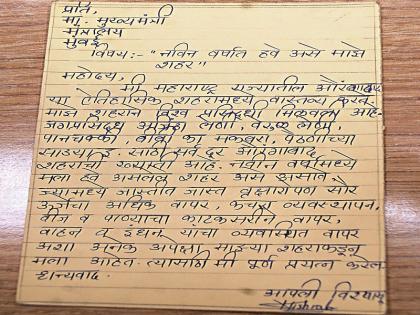 प्रति,
मा. मुख्यमंत्री
मंत्रालय
मुंबई
विषय:- "नविन वर्षात हवे असे माझे
शहर"
महोदय,
मी महाराष्ट्र राज्यातील औरंगाबाद
या ऐतिहासिक शहरामध्ये वास्तव्य करते.
माझे शहराने विश्व प्रसिद्धी मिळवली आहे.
जगप्रसिद्ध अजिंठा लेणी, वेरूळ लेणी,
पानचक्की, बीबी का मकबरा, पैठणीच्या
साडया इ. साठी सर्व दूर औरंगाबाद
शहराची ख्याती आहे. नवीन वर्षामध्ये
मला हवे असलेले शहर असे असावे.
ज्यामध्ये जास्तीत जास्त वृक्षारोपण सौर
ऊर्जेचा अधिक वापर, कचरा व्यवस्थापन,
वीज व पाण्याचा काटकसरीने वापर,
वाहन व इंधन यांचा व्यवस्थित वापर
अशा अनेक अपेक्षा माझ्या शहराकडून
मला आहेत. त्यासाठी मी पूर्ण प्रयत्न करेल
धन्यवाद.
आपली विश्वासू